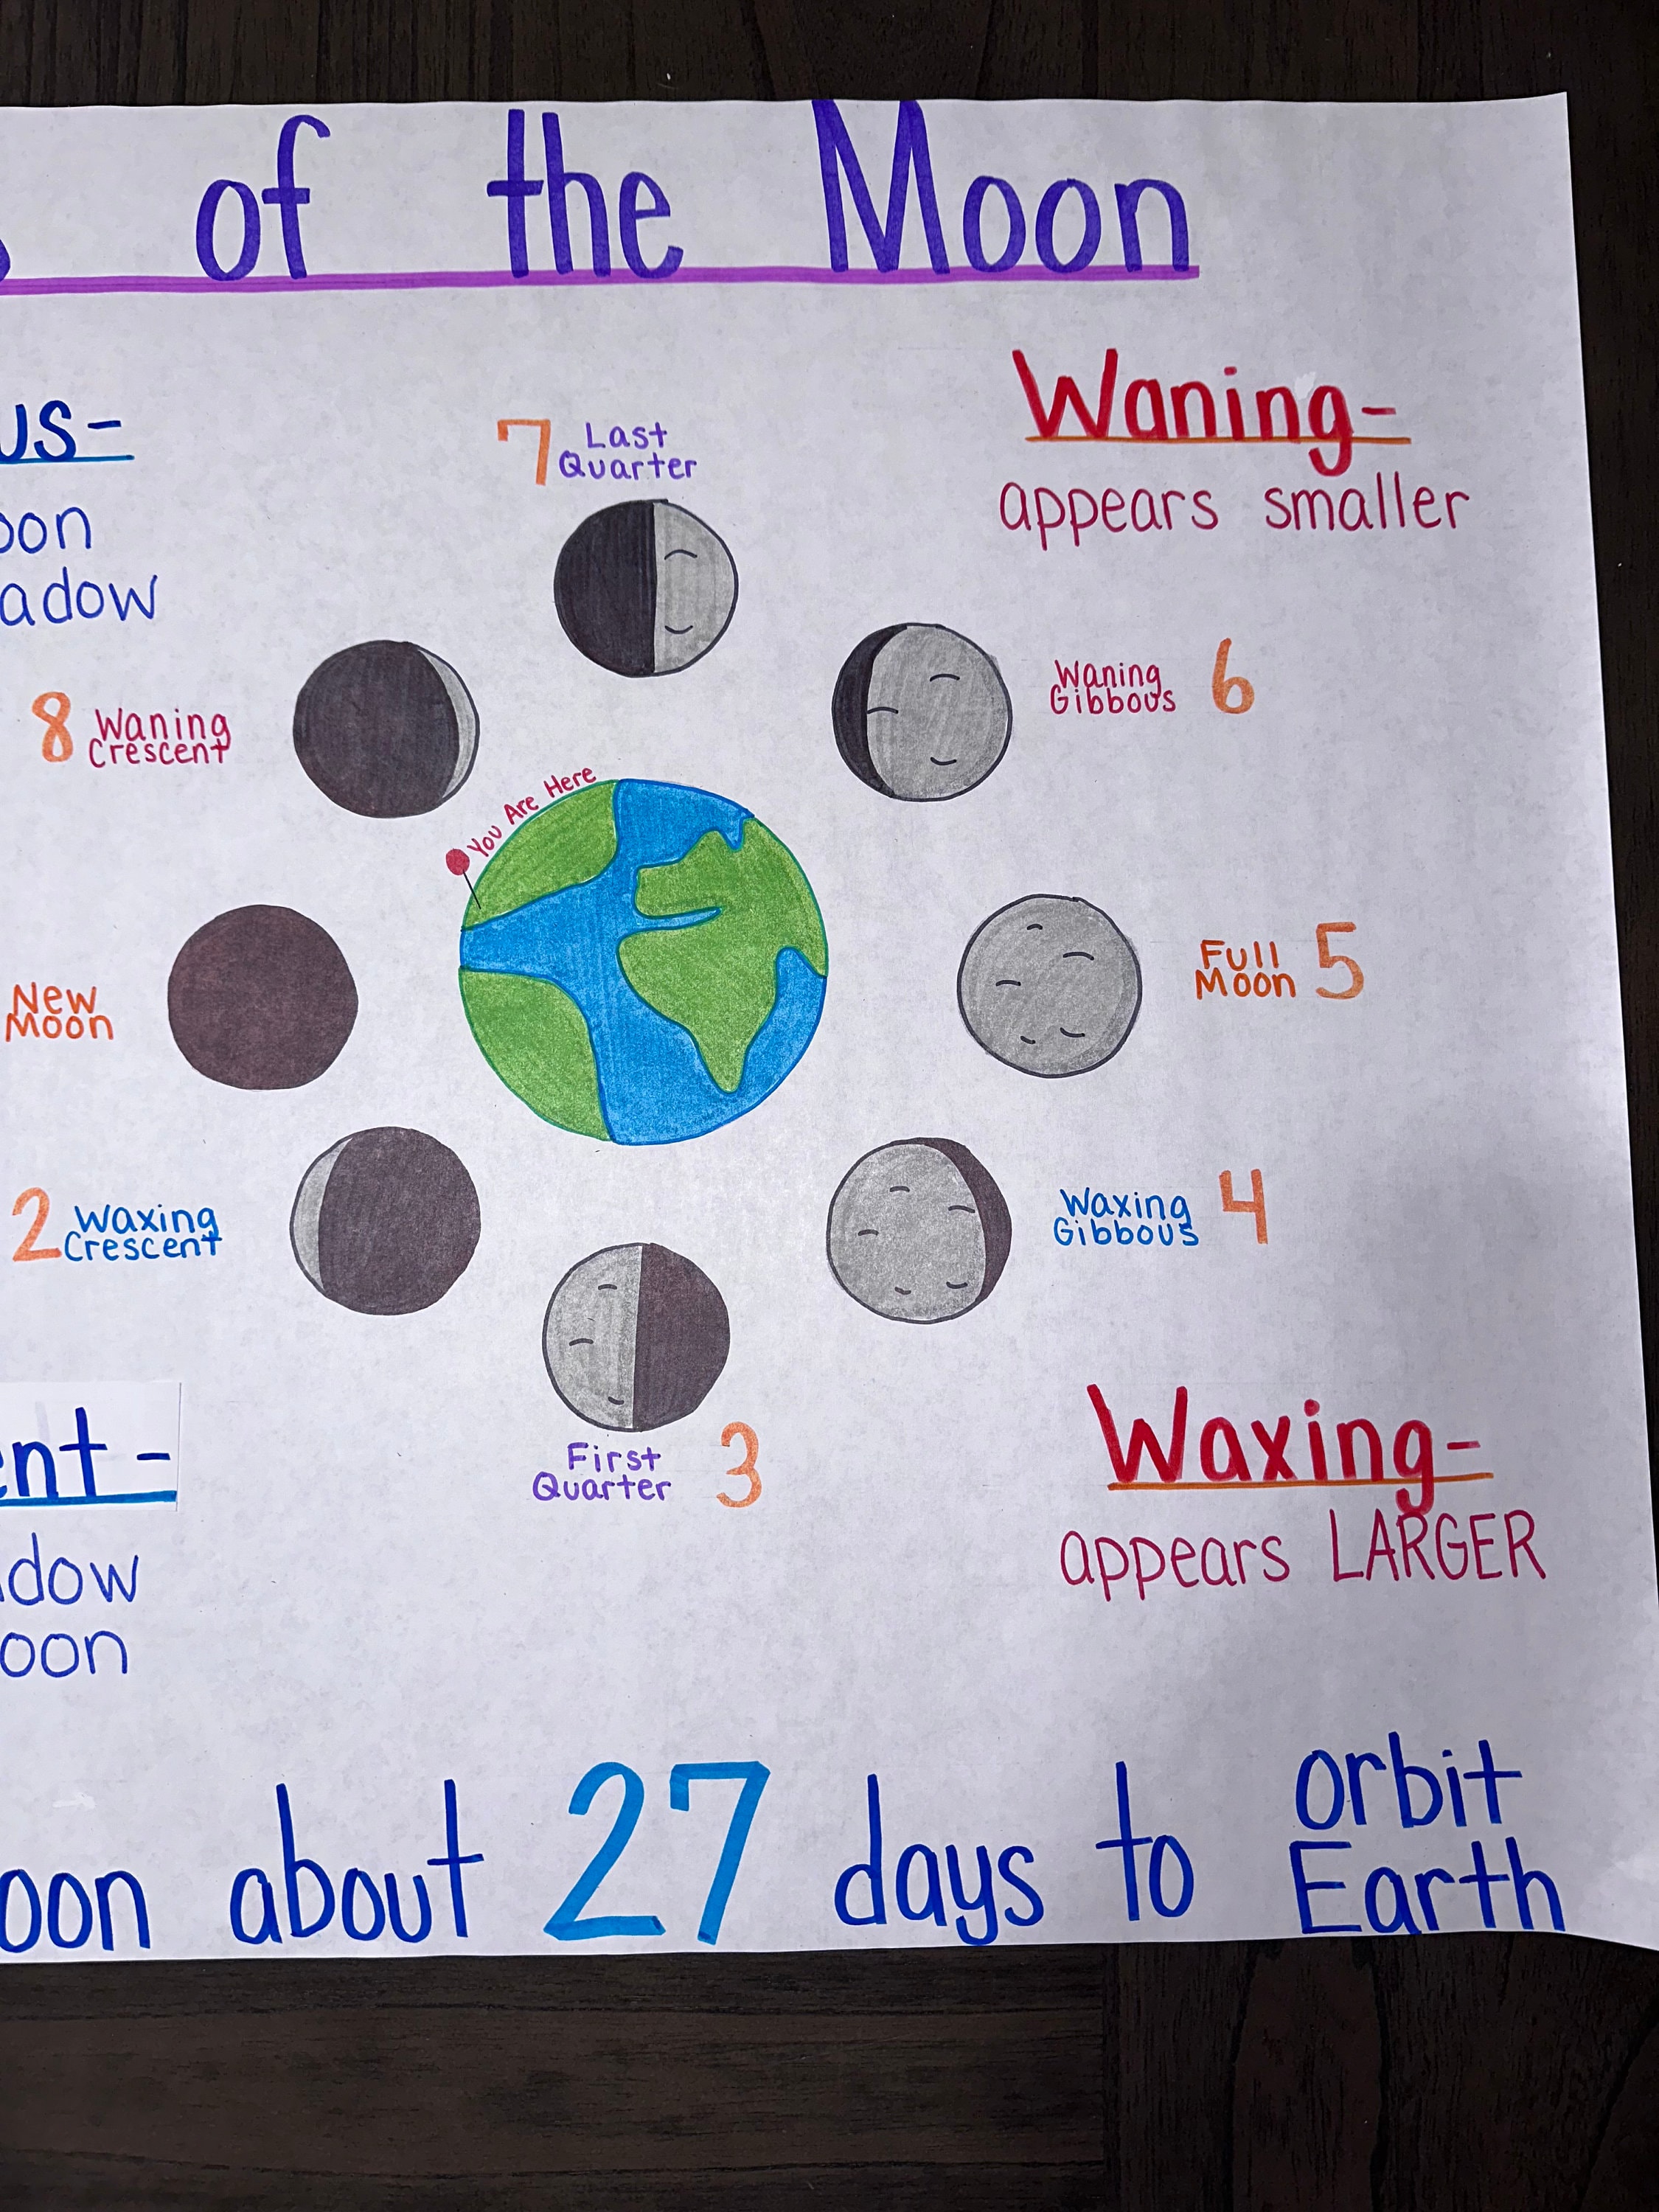 of the Moon
us-
oon
adow
Waning-
appears smaller
7 Last
Quarter
Waning
Gibbous 6
8 Waning
Crescent
You Are Here
Full
Moon 5
New
Moon
2 Waxing
Crescent
Waxing
Gibbous 4
First
Quarter 3
ent-
dow
oon
Waxing-
appears LARGER
oon about 27 days to orbit
Earth